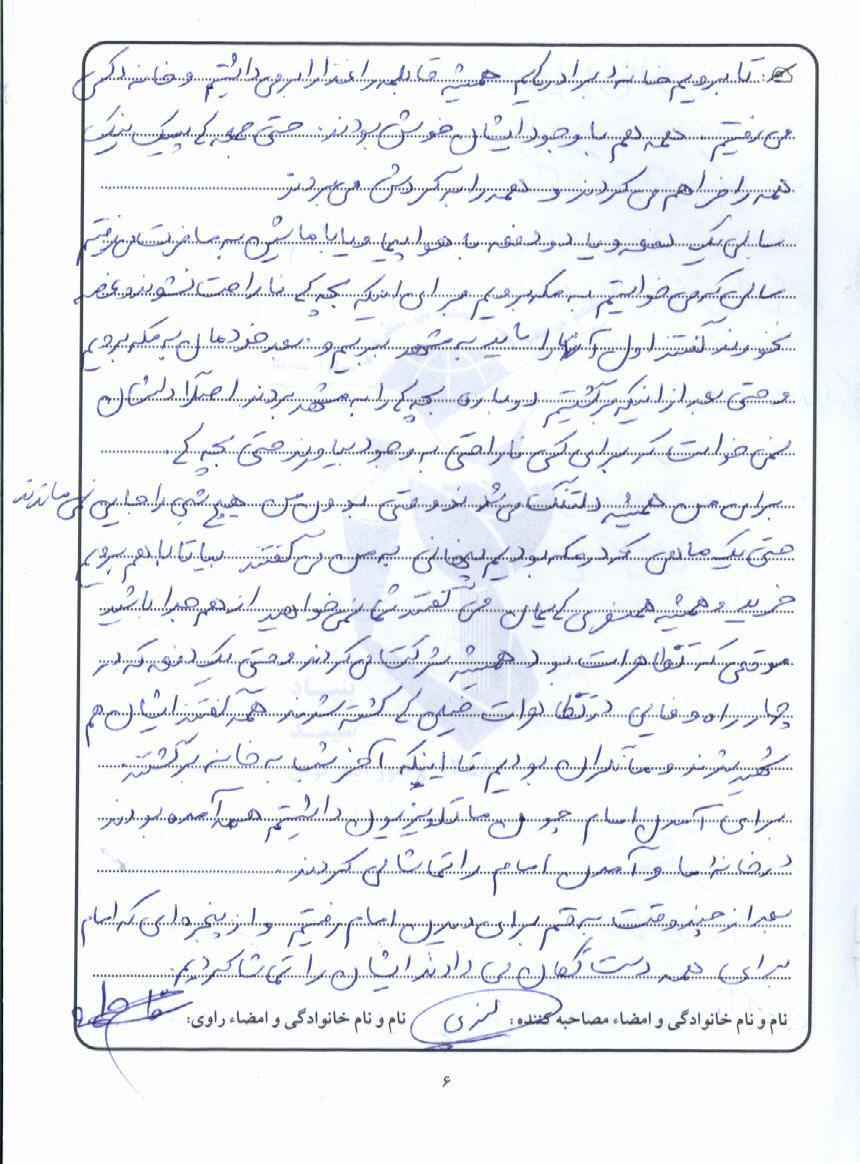 تا برویم خانه برادرهایم همیشه قابلمه را غذا را بر می داشتیم و خانه کسی
می رفتیم. همه هم با وجود ایشان خوش بودند. حتی جمعه ها پیک نیک
همه را فراهم می کردند و همه را به گردش می بردند
سالی یک دفعه و یا دو دفعه با هواپیما و یا با ماشین به مسافرت می رفتیم
سالی که می خواستیم به مکه برویم برای اینکه بچه ها ناراحت نشوند و غصه
نخورند گفتند اول آنها را باید به مشهد ببریم و بعد خودمان به مکه برویم
و حتی بعد از اینکه برگشتیم دوباره بچه ها را به مشهد بردند اصلاً دلشان
نمی خواست که برای کسی ناراحتی به وجود بیاورند حتی بچه ها.
برای من همیشه دلتنگ می شدند و حتی بدون من هیچ شبی را جایی نمی ماندند
حتی یک ماهی که در مکه بودیم پنهانی به من می گفتند بیا تا با هم برویم
خرید و همیشه همسفری هایمان می گفتند شما نمی خواهید از هم جدا باشید
موقعی که تظاهرات بود همیشه شرکت می کردند و حتی یک دفعه که در
چهارراه وفایی در تظاهرات خیلی ها کشته شدند همه گفتند ایشان هم
شهید شدند و ما نگران بودیم تا اینکه آخر شب به خانه برگشتند.
برای آمدن امام چون ما تلویزیون داشتیم همه آمده بودند
در خانه ما و آمدن امام را تماشا می کردند.
بعد از چند وقت به قم برای دیدن امام رفتیم و از پنجره ای که امام
برای همه دست تکان می دادند ایشان را تماشا کردیم.
نام و نام خانوادگی و امضاء مصاحبه کننده: نام و نام خانوادگی و امضاء راوی:
۶